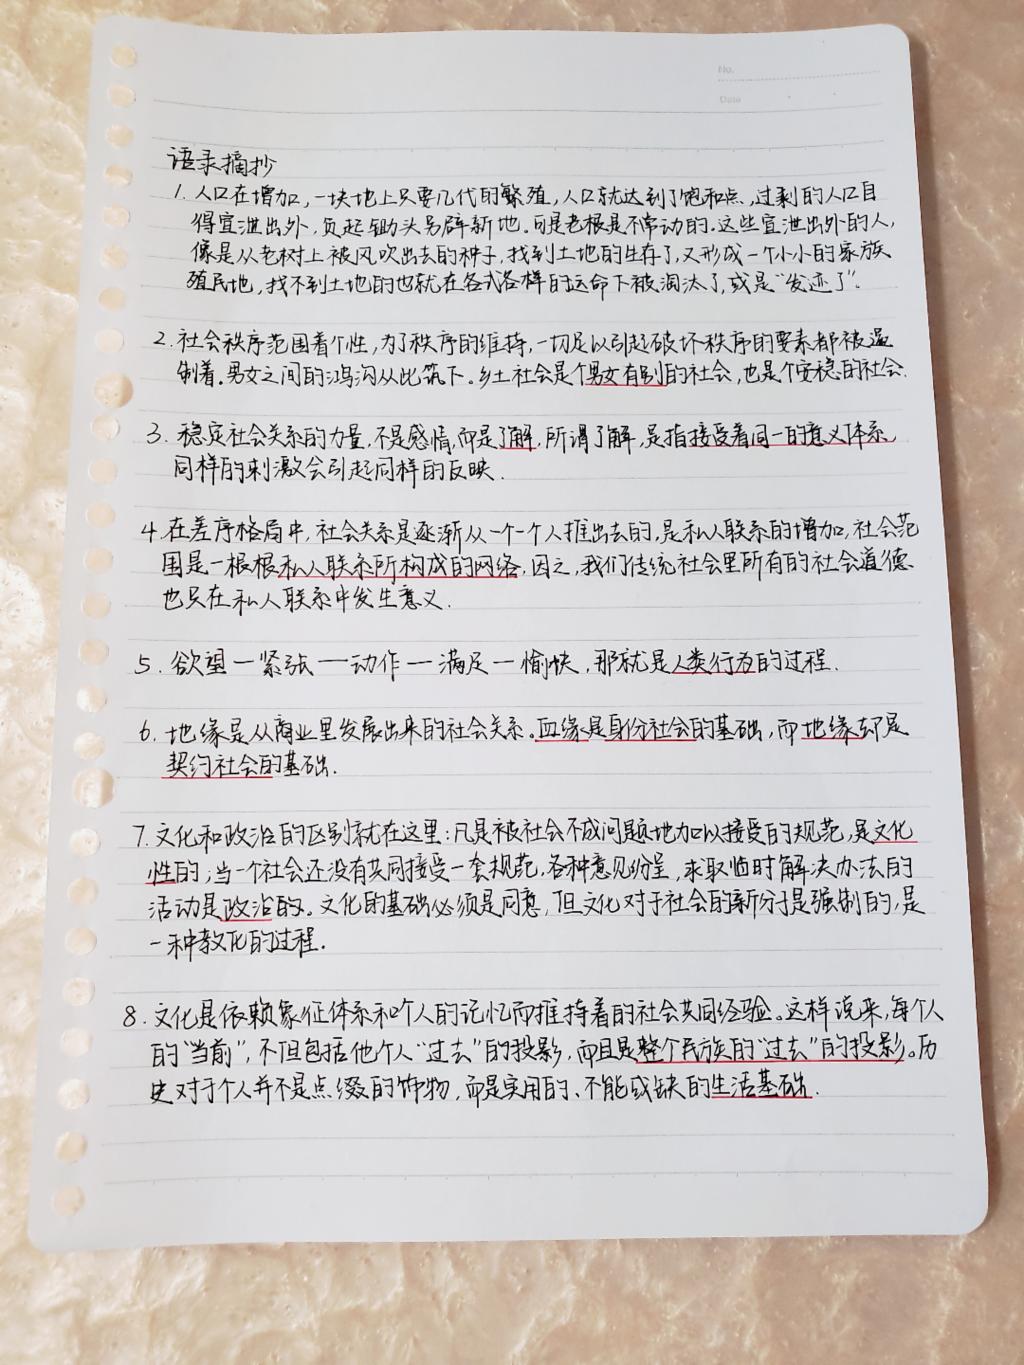 No.
Date
语录摘抄
1. 人口在增加，一块地上只要几代的繁殖，人口就达到了饱和点，过剩的人口自
得宣泄出外，负起锄头另辟新地。可是老根是不常动的。这些宣泄出外的人，
像是从老树上被风吹出去的种子，找到土地的生存了，又形成一个小小的家族
殖民地，找不到土地的也就在各式各样的运命下被淘汰了，或是“发迹了”。
2. 社会秩序范围着个性，为了秩序的维持，一切足以引起破坏秩序的要素都被遏
制着。男女之间的鸿沟从此筑下。乡土社会是个男女有别的社会，也是个安稳的社会.
3. 稳定社会关系的力量，不是感情，而是了解，所谓了解，是指接受着同一的意义体系，
同样的刺激会引起同样的反映.
4. 在差序格局中，社会关系是逐渐从一个一个人推出去的，是私人联系的增加，社会范
围是一根根私人联系所构成的网络，因之，我们传统社会里所有的社会道德
也只在私人联系中发生意义.
5. 欲望—紧张—动作—满足—愉快，那就是人类行为的过程.
6. 地缘是从商业里发展出来的社会关系。血缘是身份社会的基础，而地缘却是
契约社会的基础.
7. 文化和政治的区别就在这里：凡是被社会不成问题地加以接受的规范，是文化
性的；当一个社会还没有共同接受一套规范，各种意见纷呈，求取临时解决办法的
活动是政治的。文化的基础必须是同意，但文化对于社会的新分子是强制的，是
一种教化的过程.
8. 文化是依赖象征体系和个人的记忆而维持着的社会共同经验。这样说来，每个人
的“当前”，不但包括他个人“过去”的投影，而且是整个民族的“过去”的投影。历
史对于个人并不是点缀的饰物，而是实用的、不能或缺的生活基础.